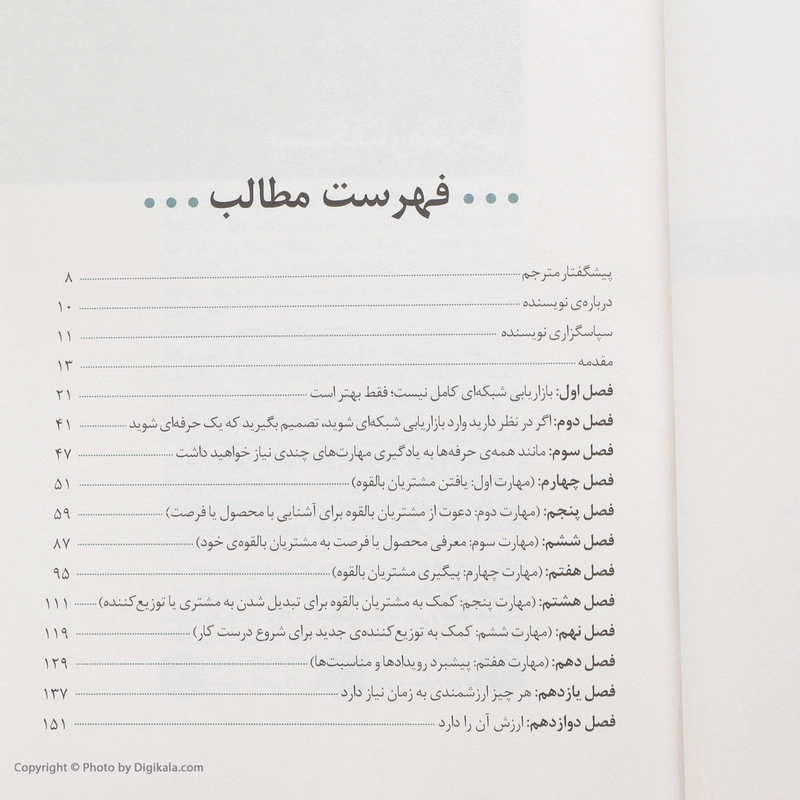 ... فهرست مطالب ...
پیشگفتار مترجم ........ ۸
درباره‌ی نویسنده ........ ۱۰
سپاسگزاری نویسنده ........ ۱۱
مقدمه ........ ۱۳
فصل اول: بازاریابی شبکه‌ای کامل نیست؛ فقط بهتر است ........ ۲۱
فصل دوم: اگر در نظر دارید وارد بازاریابی شبکه‌ای شوید، تصمیم بگیرید که یک حرفه‌ای شوید ........ ۴۱
فصل سوم: مانند همه‌ی حرفه‌ها به یادگیری مهارت‌های چندی نیاز خواهید داشت ........ ۴۷
فصل چهارم: (مهارت اول: یافتن مشتریان بالقوه) ........ ۵۱
فصل پنجم: (مهارت دوم: دعوت از مشتریان بالقوه برای آشنایی با محصول یا فرصت) ........ ۵۹
فصل ششم: (مهارت سوم: معرفی محصول یا فرصت به مشتریان بالقوه‌ی خود) ........ ۸۷
فصل هفتم: (مهارت چهارم: پیگیری مشتریان بالقوه) ........ ۹۵
فصل هشتم: (مهارت پنجم: کمک به مشتریان بالقوه برای تبدیل شدن به مشتری یا توزیع‌کننده) ........ ۱۱۱
فصل نهم: (مهارت ششم: کمک به توزیع‌کننده‌ی جدید برای شروع درست کار) ........ ۱۱۹
فصل دهم: (مهارت هفتم: پیشبرد رویدادها و مناسبت‌ها) ........ ۱۲۹
فصل یازدهم: هر چیز ارزشمندی به زمان نیاز دارد ........ ۱۳۷
فصل دوازدهم: ارزش آن را دارد ........ ۱۵۱
Copyright © Photo by Digikala.com